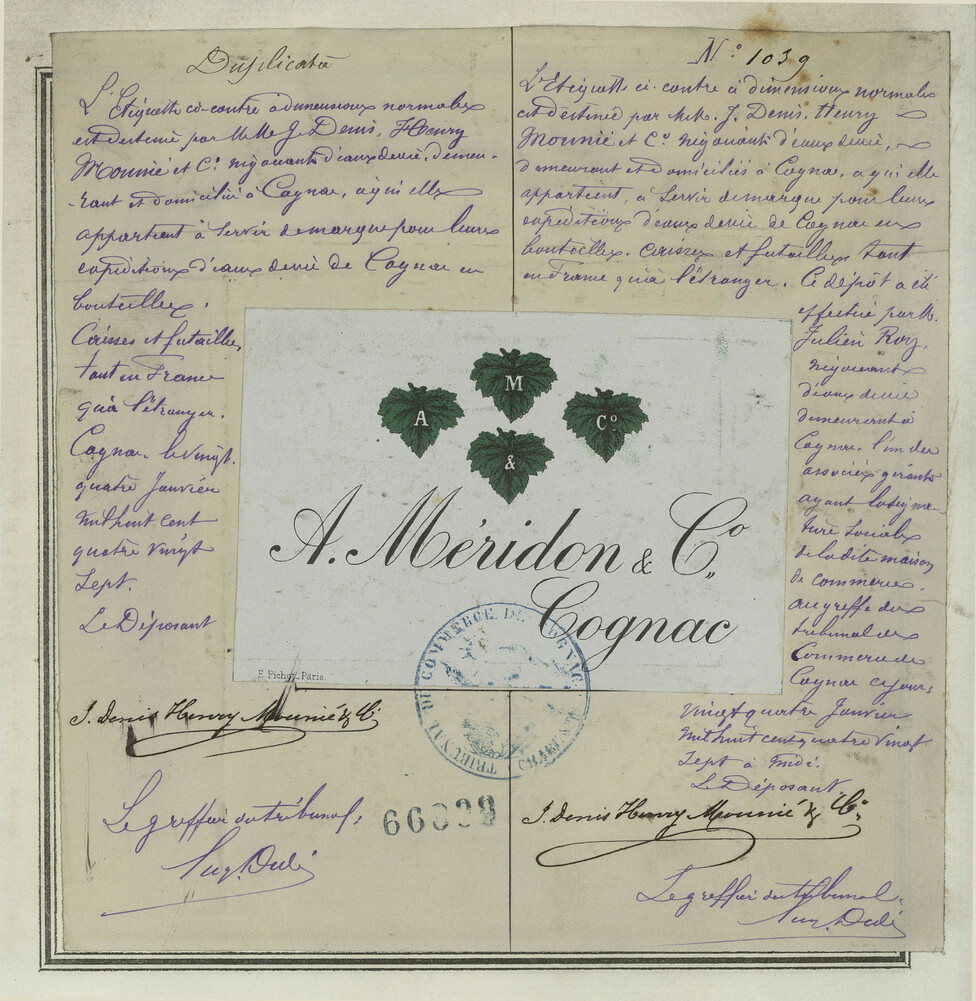 Duplicata
L'Etiquette ci-contre à dimensions normales
est destinée par MM. J. Denis, Henry
Mounié et Co. négociants d'eaux de vie, demeu-
-rant et domiciliés à Cognac, à qui elle
appartient à servir de marque pour leurs
expéditions d'eaux de vie de Cognac en
bouteilles.
Caisses et futailles,
tant en France
qu'à l'étranger.
Cognac. le vingt.
quatre Janvier
mil huit cent
quatre vingt
Sept.
Le Déposant
J. Denis Henry Mounié & Co
Le greffier du tribunal:
N° 1039
L'Etiquette ci-contre à dimensions normales
est destinée par MM. J. Denis, Henry
Mounié et Co. négociants d'eaux de vie,
demeurant et domiciliés à Cognac, à qui elle
appartient, à servir de marque pour leurs
expéditions d'eaux de vie de Cognac en
bouteilles. Caisses et futailles tant
en France qu'à l'étranger. Ce dépôt a été
effectué par M.
Julien Roy,
négociant
d'eaux de vie
demeurant à
Cognac, l'un des
associés gérants
ayant la signa-
ture sociale
de la dite maison
de commerce
au greffe du
tribunal de
Commerce de
Cognac ce jour,
vingt quatre Janvier
mil huit cent quatre vingt
Sept à midi.
Le Déposant.
J. Denis Henry Mounié & Co.
Le greffier du tribunal:
A M & Co
A. Méridon & Co
Cognac
E. Pichot, Paris.
TRIBUNAL DU COMMERCE DE COGNAC